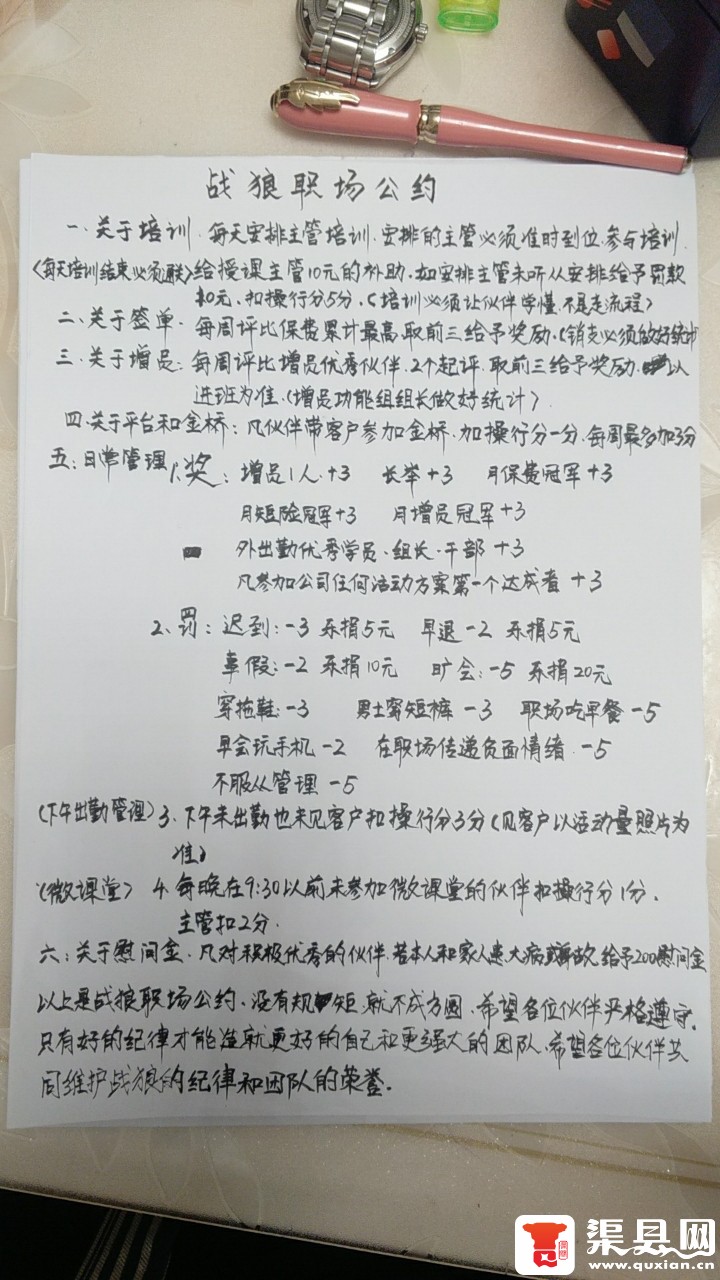 战狼职场公约
一、关于培训、每天安排主管培训、安排的主管必须准时到位、参与培训
(每天培训结束必须通关)给授课主管10元的补助、如安排主管未听从安排给予罚款
10元、扣操行分5分、(培训必须让伙伴学懂、不是走流程)
二、关于签单、每周评比保费累计最高、取前三给予奖励、(销支必须做好统计)
三、关于增员：每周评比增员优秀伙伴、2个起评、取前三给予奖励、以
进班为准、(增员功能组组长做好统计)
四、关于平台和金桥：凡伙伴带客户参加金桥、加操行分一分、每周最多加3分
五：日常管理 1、奖：增员1人：+3 长举+3 月保费冠军+3
月短险冠军+3 月增员冠军+3
外出勤优秀学员、组长、干部 +3
凡参加公司任何活动方案第一个达成者 +3
2、罚：迟到：-3 乐捐5元 早退-2 乐捐5元
事假：-2 乐捐10元 旷会：-5 乐捐20元
穿拖鞋：-3 男士穿短裤 -3 职场吃早餐 -5
早会玩手机 -2 在职场传递负面情绪 -5
不服从管理 -5
(下午出勤管理) 3、下午未出勤也未见客户扣操行分3分(见客户以活动量照片为
准)
(微课堂) 4、每晚在9:30以前未参加微课堂的伙伴扣操行分1分、
主管扣2分.
六：关于慰问金、凡对积极优秀的伙伴、若本人和家人患大病或事故、给予200慰问金
以上是战狼职场公约、没有规矩、就不成方圆、希望各位伙伴严格遵守、
只有好的纪律才能造就更好的自己和更强大的团队、希望各位伙伴共
同维护战狼的纪律和团队的荣誉.
渠县网
www.quxian.cn